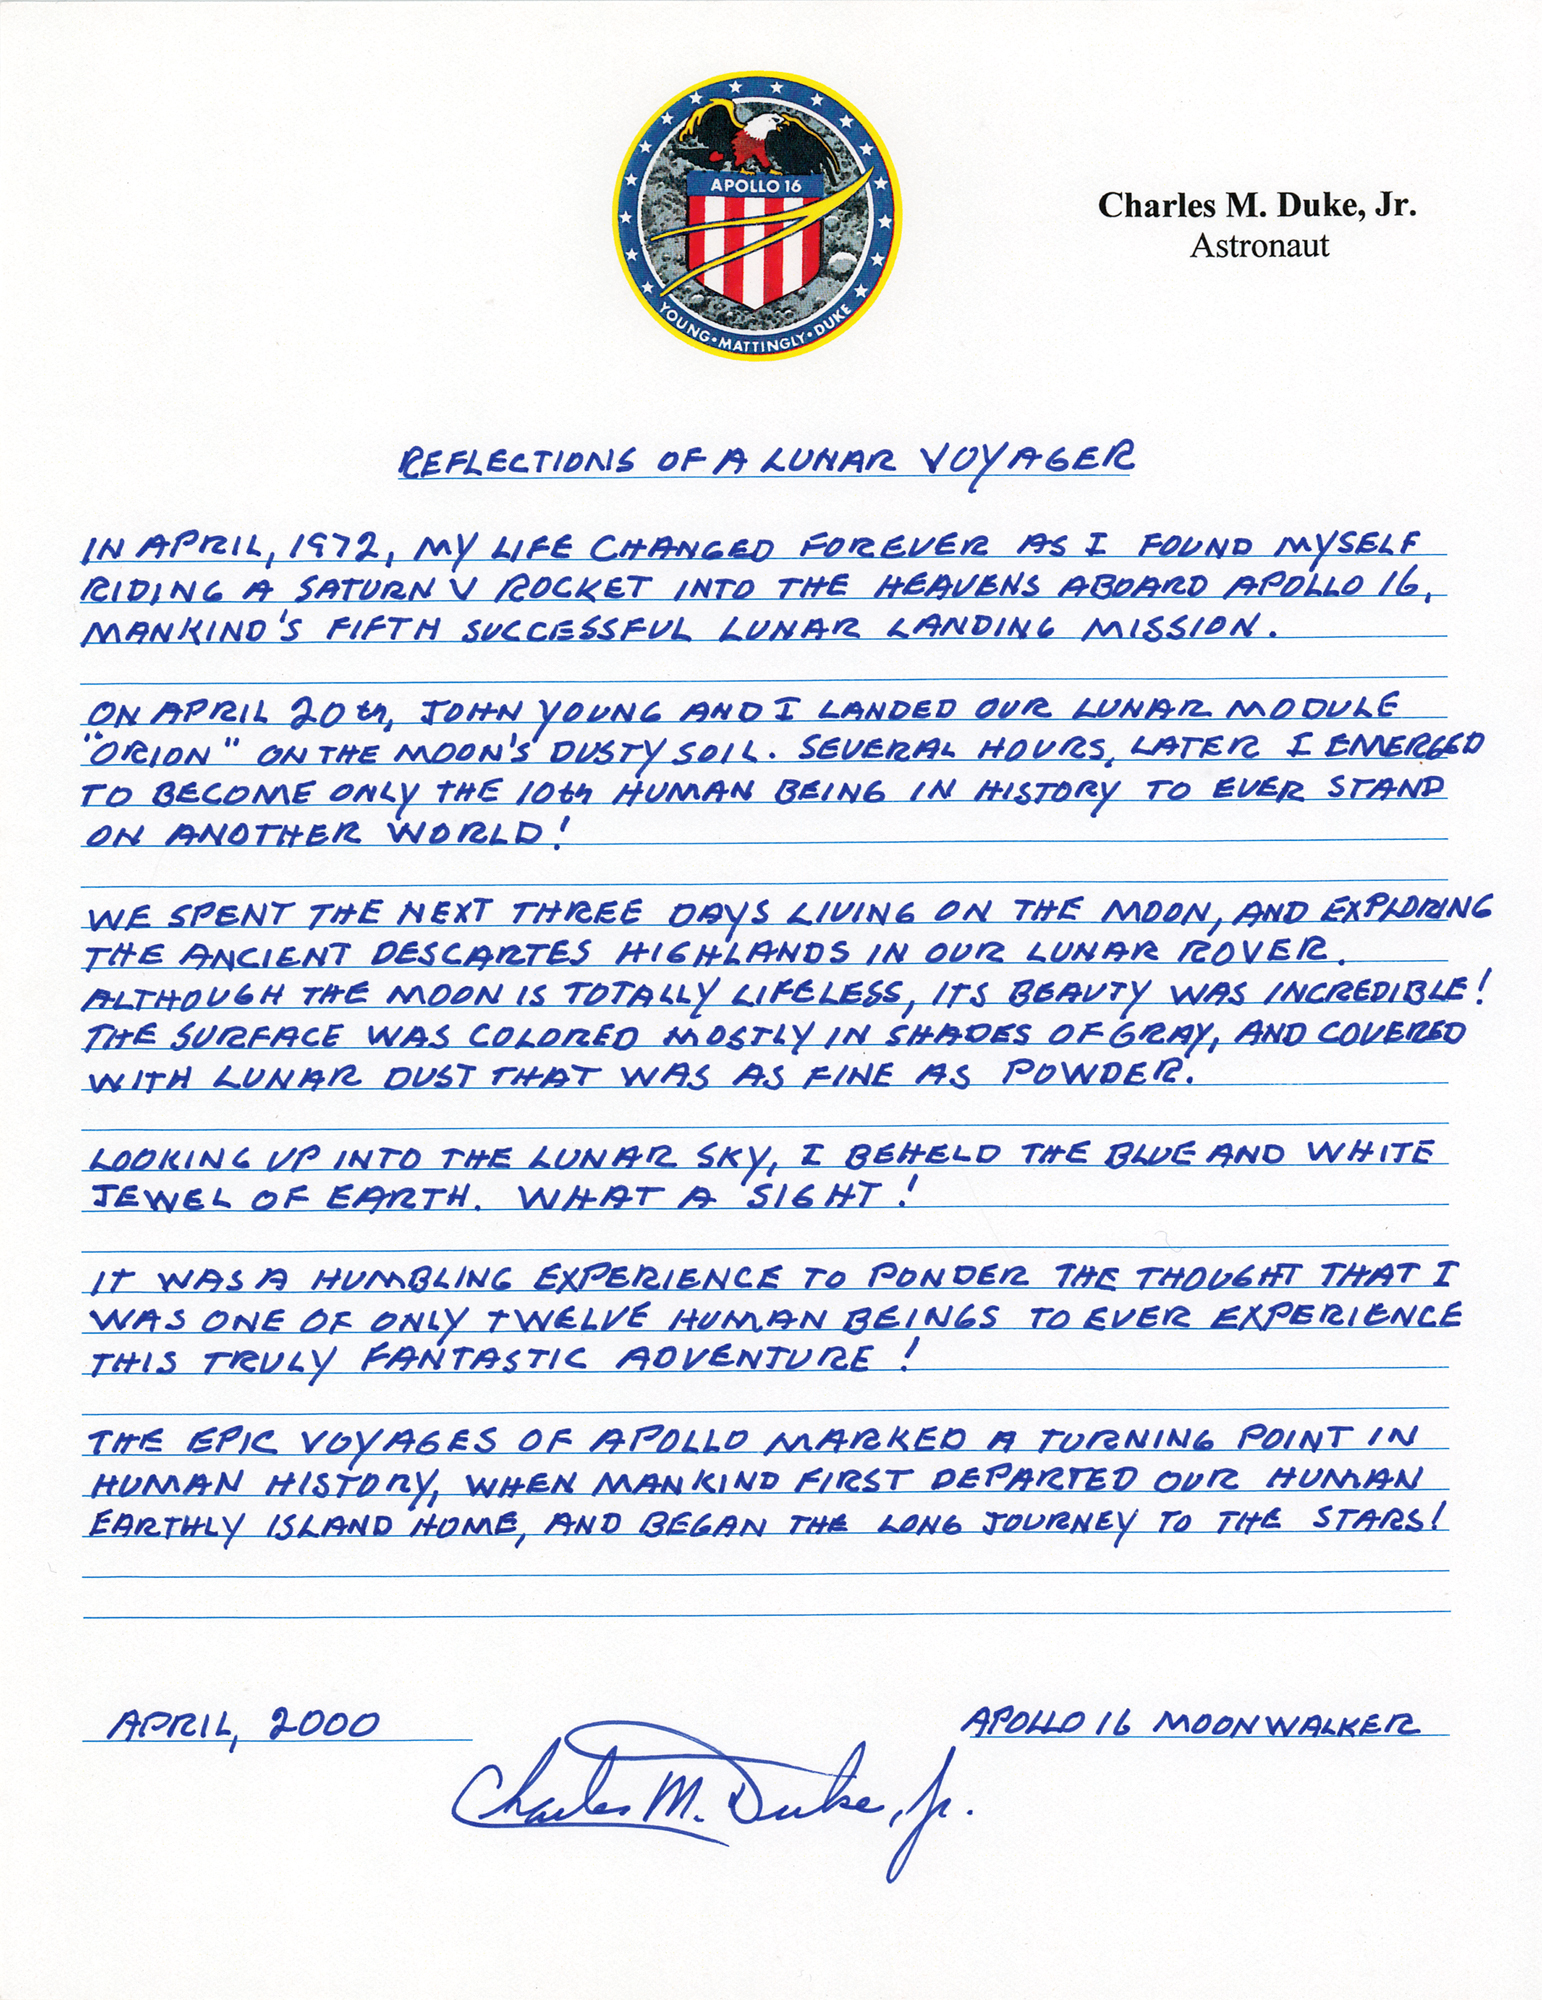 APOLLO 16
YOUNG • MATTINGLY • DUKE
Charles M. Duke, Jr.
Astronaut
REFLECTIONS OF A LUNAR VOYAGER
IN APRIL, 1972, MY LIFE CHANGED FOREVER AS I FOUND MYSELF
RIDING A SATURN V ROCKET INTO THE HEAVENS ABOARD APOLLO 16,
MANKIND'S FIFTH SUCCESSFUL LUNAR LANDING MISSION.
ON APRIL 20th, JOHN YOUNG AND I LANDED OUR LUNAR MODULE
"ORION" ON THE MOON'S DUSTY SOIL. SEVERAL HOURS, LATER I EMERGED
TO BECOME ONLY THE 10th HUMAN BEING IN HISTORY TO EVER STAND
ON ANOTHER WORLD!
WE SPENT THE NEXT THREE DAYS LIVING ON THE MOON, AND EXPLORING
THE ANCIENT DESCARTES HIGHLANDS IN OUR LUNAR ROVER.
ALTHOUGH THE MOON IS TOTALLY LIFELESS, ITS BEAUTY WAS INCREDIBLE!
THE SURFACE WAS COLORED MOSTLY IN SHADES OF GRAY, AND COVERED
WITH LUNAR DUST THAT WAS AS FINE AS POWDER.
LOOKING UP INTO THE LUNAR SKY, I BEHELD THE BLUE AND WHITE
JEWEL OF EARTH. WHAT A SIGHT!
IT WAS A HUMBLING EXPERIENCE TO PONDER THE THOUGHT THAT I
WAS ONE OF ONLY TWELVE HUMAN BEINGS TO EVER EXPERIENCE
THIS TRULY FANTASTIC ADVENTURE!
THE EPIC VOYAGES OF APOLLO MARKED A TURNING POINT IN
HUMAN HISTORY, WHEN MANKIND FIRST DEPARTED OUR HUMAN
EARTHLY ISLAND HOME, AND BEGAN THE LONG JOURNEY TO THE STARS!
APRIL, 2000
APOLLO 16 MOONWALKER
Charles M. Duke, Jr.